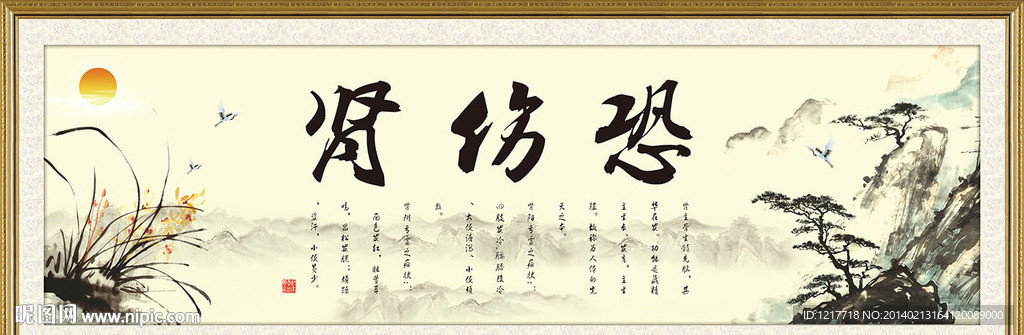 恐伤肾
肾主骨生髓充脑，其
华在发。功能是藏精
主生长、发育，主生
殖。故称为人体的先
天之本。
肾阳亏虚之症状：
四肢发冷，腰膝发冷
、大便溏泻、小便频
数。
肾阴亏虚之症状：
面色发红，
鸣，齿松发脱；
、盗汗，小便黄少。
昵图网 www.nipic.com
ID:1217718 NO:20140213164120089000